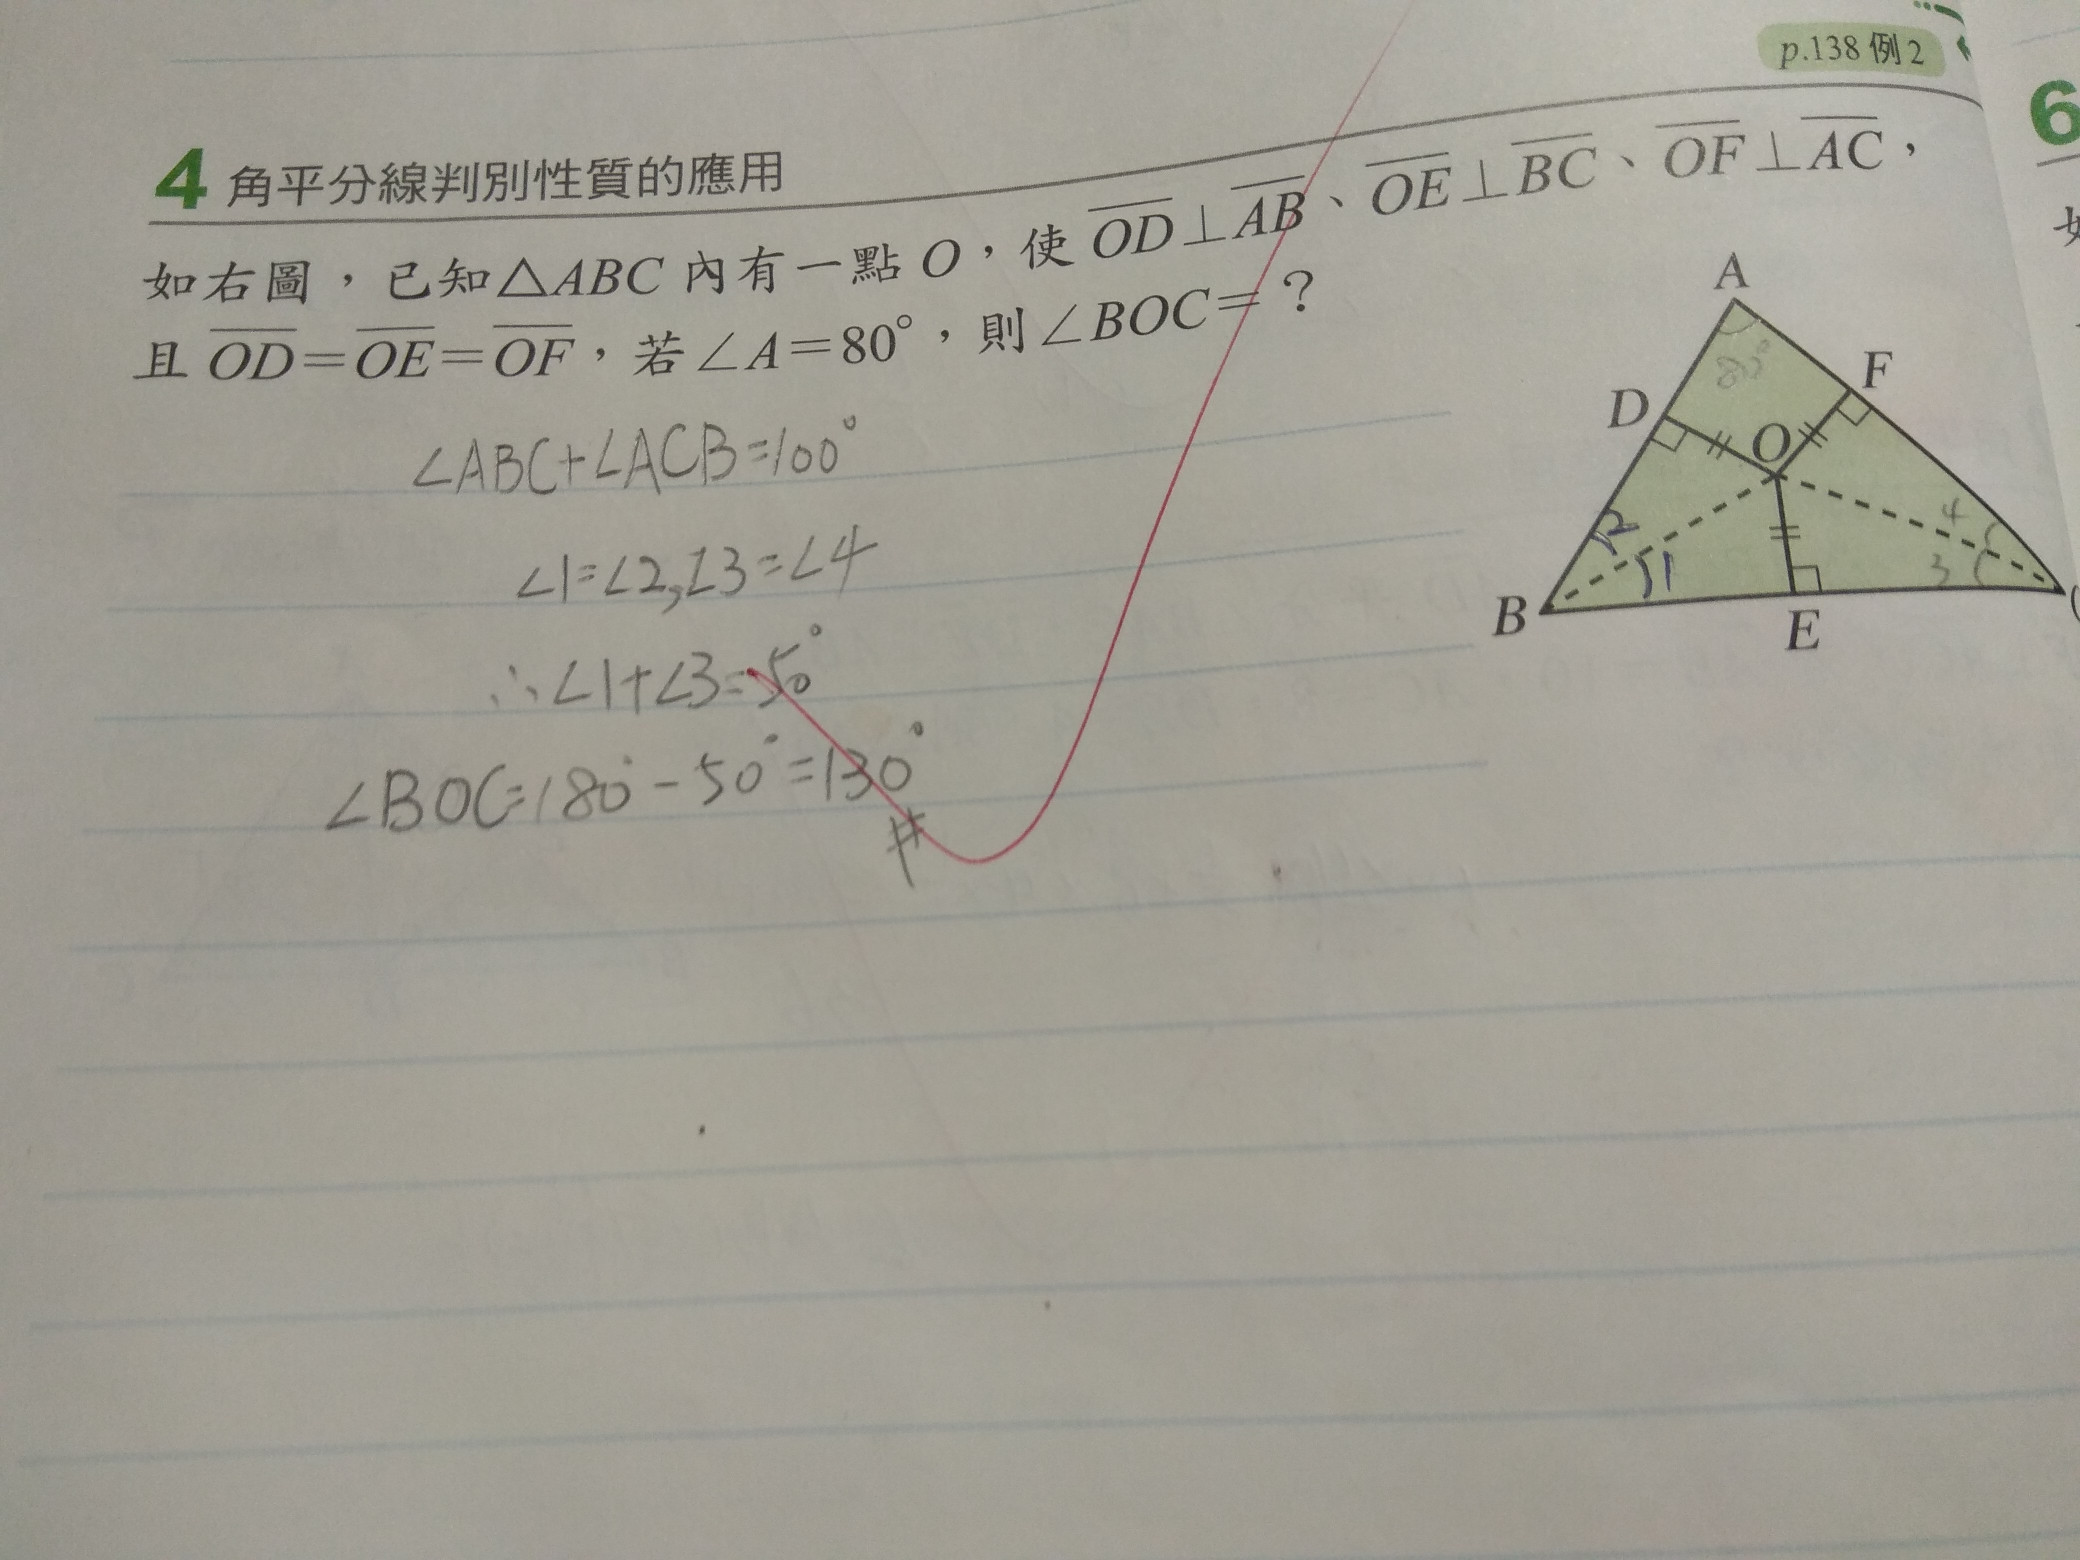 p.138 例2
4 角平分線判別性質的應用
如右圖，已知△ABC 內有一點 O，使 OD⊥AB、OE⊥BC、OF⊥AC，
且 OD=OE=OF，若∠A=80°，則∠BOC=？
∠ABC+∠ACB=100°
∠1=∠2,∠3=∠4
∴∠1+∠3=50°
∠BOC=180°-50°=130°
#
A
80°
F
D
O
2
4
1
3
B
E
6